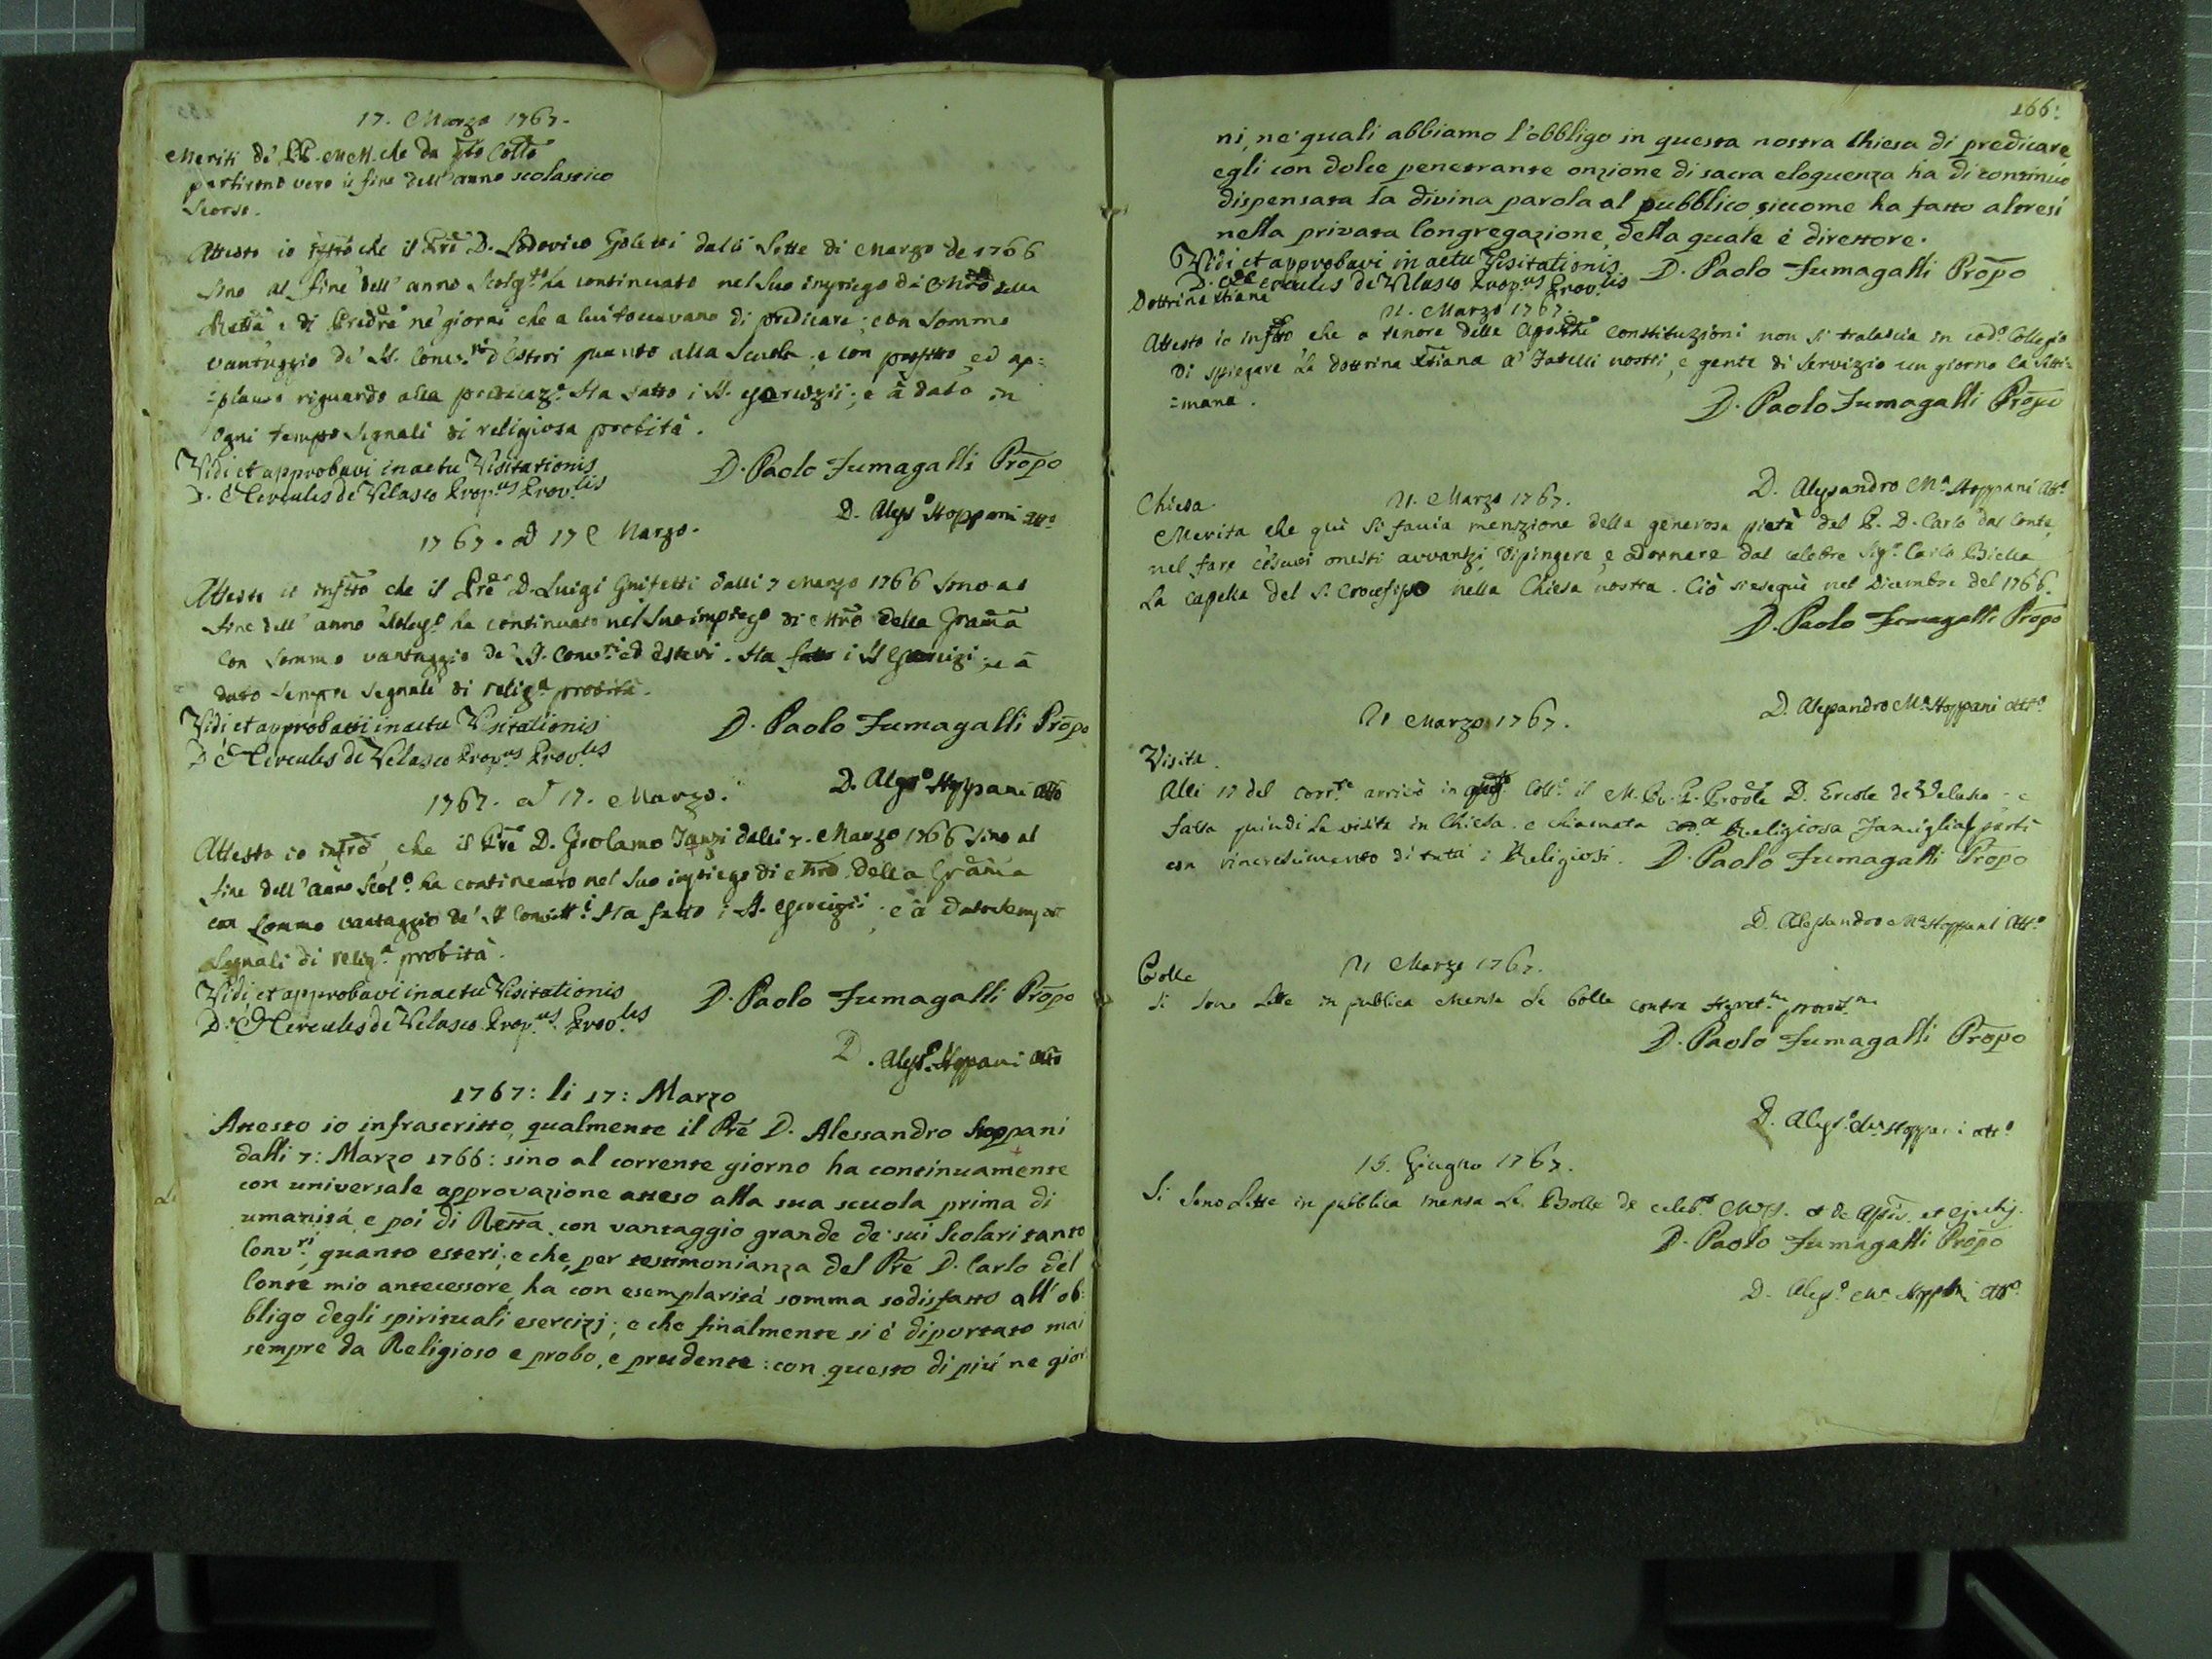 17. Marzo 1767.
Meriti de' PP. MM. che da qto Collo
partirono vero il fine dell'anno scolastico
scorso.
Attesto io inftto che il Pre D. Lodovico Goletti dalli Sette di Marzo de 1766
sino al fine dell'anno Scolgo ha continuato nel suo impiego di Mro della
Retta e di Predre ne' giorni che a lui toccavano di predicare; con sommo
vantaggio de' SS. Convri ed Esteri quanto alla Scuola; e con profitto, ed ap=
=plauso riguardo alla predicaze. Ha fatto i SS. esercizii; e à dato in
ogni tempo segnali di religiosa probità.
Vidi, et approbavi in actu Visitationis
D. Hercules de Velasco Propus Provlis
D. Paolo Fumagalli Propo
D. Aleso Stoppani Atto
1767. ad 17 Marzo.
Attesto io infrtto che il Pre D. Luigi Grifetti dalli 7 Marzo 1766 sino al
fine dell'anno ha continuato nel suo impiego di Mro della Grama
con sommo vantaggio de' SS. Convri ed esteri. Ha fatto i SS Esercizi; e à
dato sempre segnali di religa probità.
Vidi, et approbavi in actu Visitationis
D. Hercules de Velasco Propus Provlis
D. Paolo Fumagalli Propo
D. Aleso Stoppani Atto
1767. ad 17. Marzo.
Attesto io infrto, che il Pre D. Girolamo dalli 7. Marzo 1766 sino al
fine dell'anno Scolo ha continuato nel suo impiego di Mro della Grama
con sommo vantaggio de' SS Convitti. Ha fatto i SS. esercizii; e à dato sempre
segnali di religa probità.
Vidi, et approbavi in actu Visitationis
D. Hercules de Velasco Propus Provlis
D. Paolo Fumagalli Propo
D. Aleso Stoppani Atto
1767: li 17: Marzo
Attesto io infrascritto, qualmente il Pre D. Alessandro Stoppani
dalli 7: Marzo 1766: sino al corrente giorno ha continuamente
con universale approvazione atteso alla sua scuola prima di
umanitá, e poi di Retta, con vantaggio grande de' sui Scolari tanto
Convri, quanto esteri; e che, per testimonianza del Pre D. Carlo del
Conte mio antecessore, ha con esemplaritá somma sodisfatto all'ob:
bligo degli spirituali esercizj; e che finalmente si é diportato mai
sempre da Religioso e probo, e prudente: con questo di piú ne gior
166:
ni, ne' quali abbiamo l'obbligo in questa nostra Chiesa di predicare
egli con dolce penetrante onzione di sacra eloquenza ha di continuo
dispensata la divina parola al pubblico, siccome ha fatto altresi
nella privata Congregazione, della quale é direttore.
Vidi et approbavi in actu Visitationis
D. Hercules de Velasco Propus Provlis
D. Paolo Fumagalli Propo
Dottrina Xtiana
21. Marzo 1767.
Attesto io inftto che a tenore delle Constituzioni non si tralascia in codo Collegio
di spiegare la dottrina Xtiana a' Fratelli nostri, e gente di servizio un giorno la setti=
=mana.
D. Paolo Fumagalli Propo
D. Alesandro Ma Stoppani Atto
Chiesa.
21. Marzo 1767.
Merita che quì si faccia menzione della generosa pietà del P. D. Carlo dal Conte,
nel fare co' suoi onesti avvantzi dipingere, e adornare dal celebre Sigr Carlo Biella
la capella del S. Crocefisso nella Chiesa nostra. Ciò si eseguì nel Dicembre del 1766.
D. Paolo Fumagalli Propo
D. Alesandro Ma Stoppani Atto
21 Marzo 1767.
Visita.
Alli 17 del corrte arrivò in questo Collo il M. R. P. Provle D. Ercole de Velasco; e
fatta quindi la visita in Chiesa, e chiamata coda Religiosa Famiglia, partì
con rincrescimento di tutti i Religiosi.
D. Paolo Fumagalli Propo
D. Alessandro Ma Stoppani Atto
21 Marzo 1767.
Bolle
Si sono lette in pubblica Mensa le bolle contra
D. Paolo Fumagalli Propo
D. Aleso Ma Stoppani Atto
15. Giugno 1767.
Si sono lette in pubblica mensa le Bolle de celebe Miss. et de
D. Paolo Fumagalli Propo
D. Aleso Ma Stoppani Atto